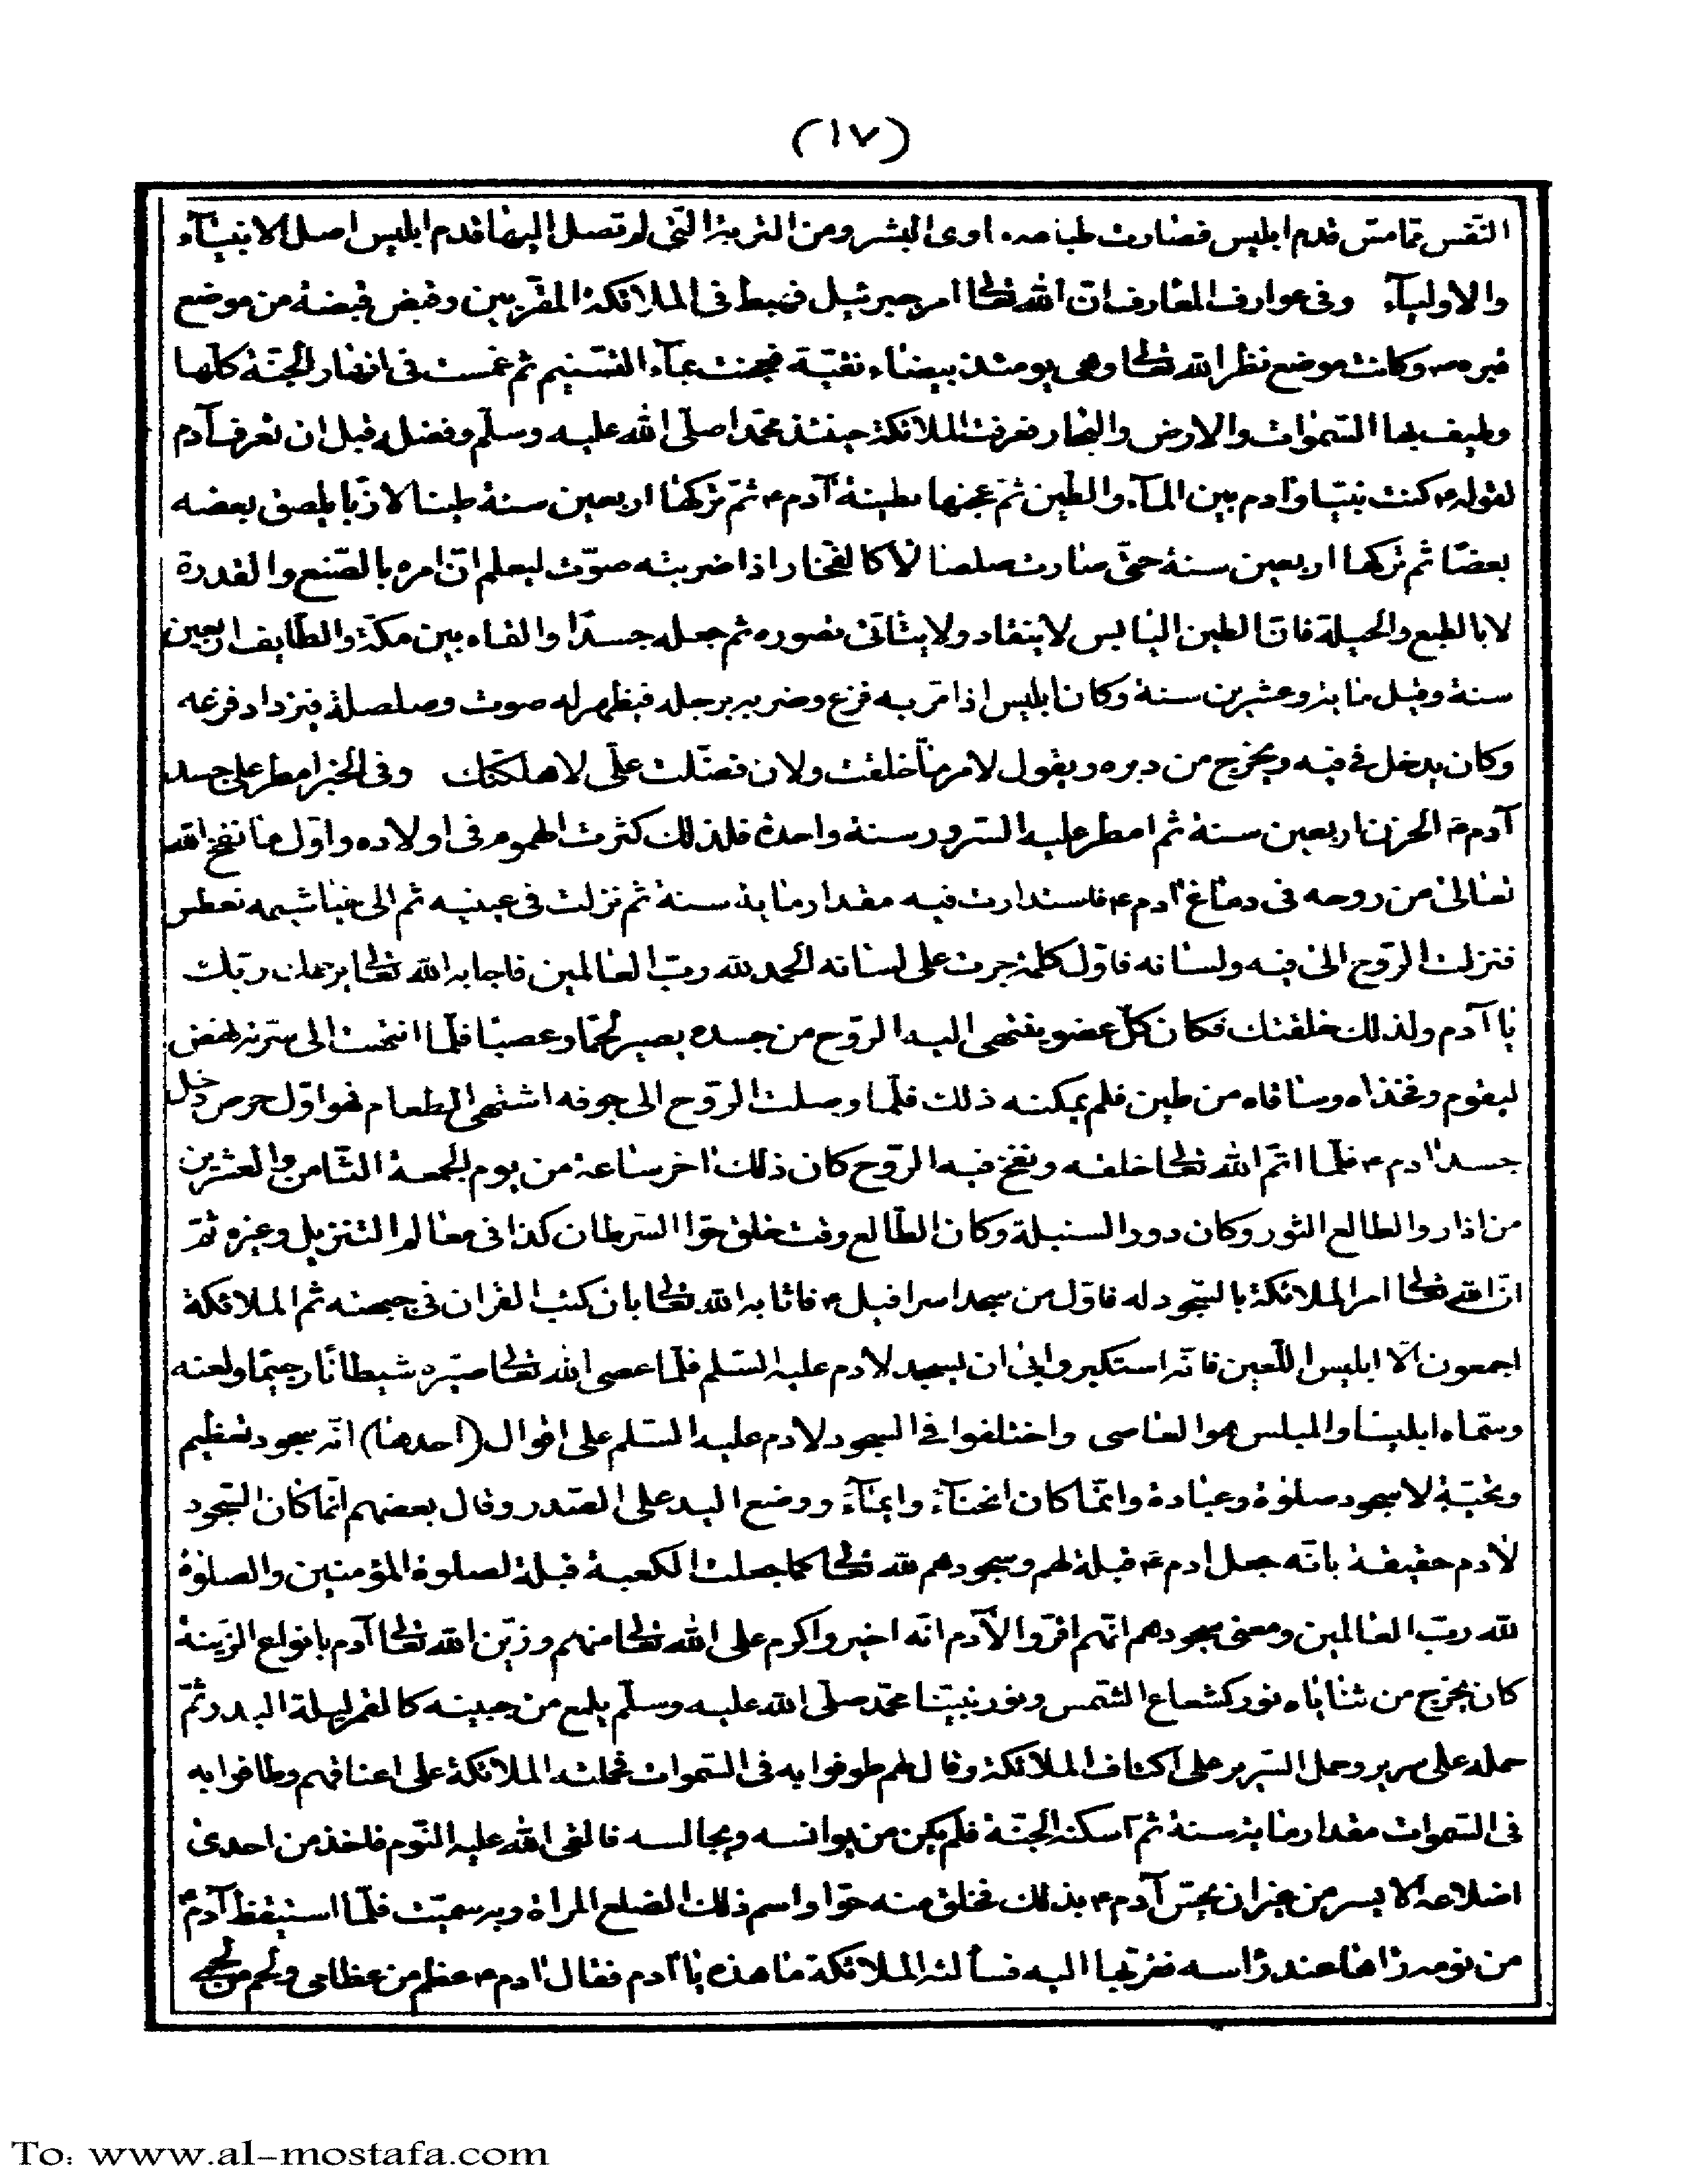 (١٧)
النفس تمامس قدم ابليس فصارت مأوى البشر ومن التربة التى لم تصل اليها قدم ابليس اصل الانبيآء
والاوليآء وفى عوارف المعارف ان الله تعالى امر جبرئيل فهبط فى الملائكة المقربين وقبض قبضة من موضع
قبره ص وكانت موضع نظر الله تعالى وهى يومئذ بيضاء نقية فعجنت بمآء التسنيم ثم غمست فى انهار الجنة كلها
وطيف بها السموات والارض والبحار فعرفت الملائكة حينئذ محمدا صلى الله عليه وسلم وفضله قبل ان تعرف آدم
لقوله ع كنت نبيا وآدم بين المآء والطين ثم عجنها بطينة آدم ع ثم تركها اربعين سنة طينا لازبا يلصق بعضه
بعضا ثم تركها اربعين سنة حتى صارت صلصالا كالفخار اذا ضربته صوّت ليعلم ان امره بالصنع والقدرة
لا بالطبع والحيلة فان الطين اليابس لا ينقاد ولا يتأتى تصوره ثم جعله جسدا والقاه بين مكة والطايف اربعين
سنة وقيل مائة وعشرين سنة وكان ابليس اذا مر به فزع وضربه برجله فيظهر له صوت وصلصلة فيزداد فزعه
وكان يدخل فى فيه ويخرج من دبره ويقول لامر ما خلقت ولان فضلت على لاهلكنك وفى الخبر امطر على جسد
آدم ع الحزن اربعين سنة ثم امطر عليه السرور سنة واحدة فلذلك كثرت الهموم فى اولاده واول ما نفخ الله
تعالى من روحه فى دماغ آدم ع فاستدارت فيه مقدار مائة سنة ثم نزلت فى عينيه ثم الى خياشيمه فعطس
فنزلت الروح الى فيه ولسانه فاول كلمة جرت على لسانه الحمد لله رب العالمين فاجابه الله تعالى يرحمك ربك
يا آدم ولذلك خلقتك فكان كل عضو ينتهى اليه الروح من جسده يصير لحما وعصبا فلما انتهت الى سرته نهض
ليقوم وفخذاه وساقاه من طين فلم يمكنه ذلك فلما وصلت الروح الى جوفه اشتهى الطعام فهو اول حرص دخل
جسد آدم ع فلما اتم الله تعالى خلقه ونفخ فيه الروح كان ذلك اخر ساعة من يوم الجمعة الثامن والعشرين
من اذار والطالع الثور وكان دور السنبلة وكان الطالع وقت خلق حوا السرطان كذا فى معالم التنزيل وغيره ثم
ان الله تعالى امر الملائكة بالسجود له فاول من سجد اسرافيل ع فاثابه الله تعالى بان كتب القران فى جبهته ثم الملائكة
اجمعون الا ابليس اللعين فانه استكبر وابى ان يسجد لادم عليه السلم فلما عصى الله تعالى صيره شيطانا رجيما ولعنه
وسماه ابليسا والمبلس هو العاصى واختلفوا فى السجود لادم عليه السلم على اقوال (احدها) انه سجود تعظيم
وتحية لا سجود صلوة وعبادة وانما كان انحنآء وايمآء ووضع اليد على الصدر وقال بعضهم انما كان السجود
لآدم حقيقة بانه جعل ادم ع قبلة لهم وسجودهم لله تعالى كما جعلت الكعبة قبلة لصلوة المؤمنين والصلوة
لله رب العالمين ومعنى سجودهم انهم اقروا لآدم انه اخير واكرم على الله تعالى منهم وزين الله تعالى آدم بانواع الزينة
كان يخرج من ثناياه نور كشعاع الشمس ونور نبينا محمد صلى الله عليه وسلم يلمع من جبينه كالقمر ليلة البدر ثم
حمله على سرير وحمل السرير على اكتاف الملائكة وقال لهم طوفوا به فى السموات فحملته الملائكة على اعناقهم وطافوا به
فى السموات مقدار مائة سنة ثم اسكنه الجنة فلم يكن من يوانسه ويجالسه فالقى الله عليه النوم فاخذ من احدى
اضلاعه الايسر من غير ان يحس آدم ع بذلك فخلق منه حوا واسم ذلك الضلع المراة وبه سميت فلما استيقظ آدم ع
من نومه رآها عند راسه فقربها اليه فسألته الملائكة ما هذه يا آدم فقال ادم ع عظم من عظامى ولحم من لحمى
To: www.al-mostafa.com